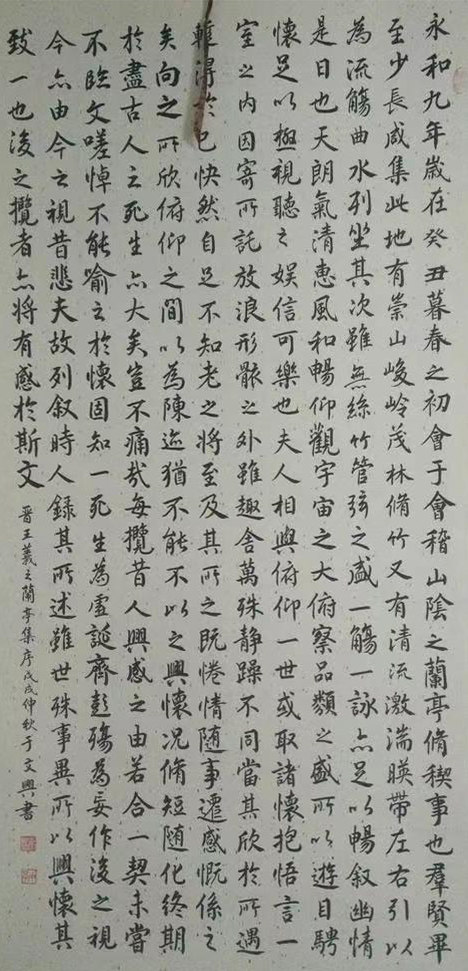 永和九年歲在癸丑暮春之初會于會稽山陰之蘭亭脩稧事也羣賢畢
至少長咸集此地有崇山峻嶺茂林脩竹又有清流激湍暎帶左右引以
為流觴曲水列坐其次雖無絲竹管弦之盛一觴一詠亦足以暢叙幽情
是日也天朗氣清惠風和暢仰觀宇宙之大俯察品類之盛所以遊目騁
懷足以極視聽之娛信可樂也夫人相與俯仰一世或取諸懷抱悟言一
室之內因寄所託放浪形骸之外雖趣舍萬殊静躁不同當其欣於所遇
暫得於己快然自足不知老之將至及其所之既惓情随事遷感慨係之
矣向之所欣俯仰之間以為陳迹猶不能不以之興懷况脩短随化終期
於盡古人云死生亦大矣豈不痛哉每攬昔人興感之由若合一契未嘗
不臨文嗟悼不能喻之於懷固知一死生為虛誕齊彭殤為妄作後之視
今亦由今之視昔悲夫故列叙時人錄其所述雖世殊事異所以興懷其
致一也後之攬者亦將有感於斯文
晉王羲之蘭亭集序戊戌仲秋于文興書